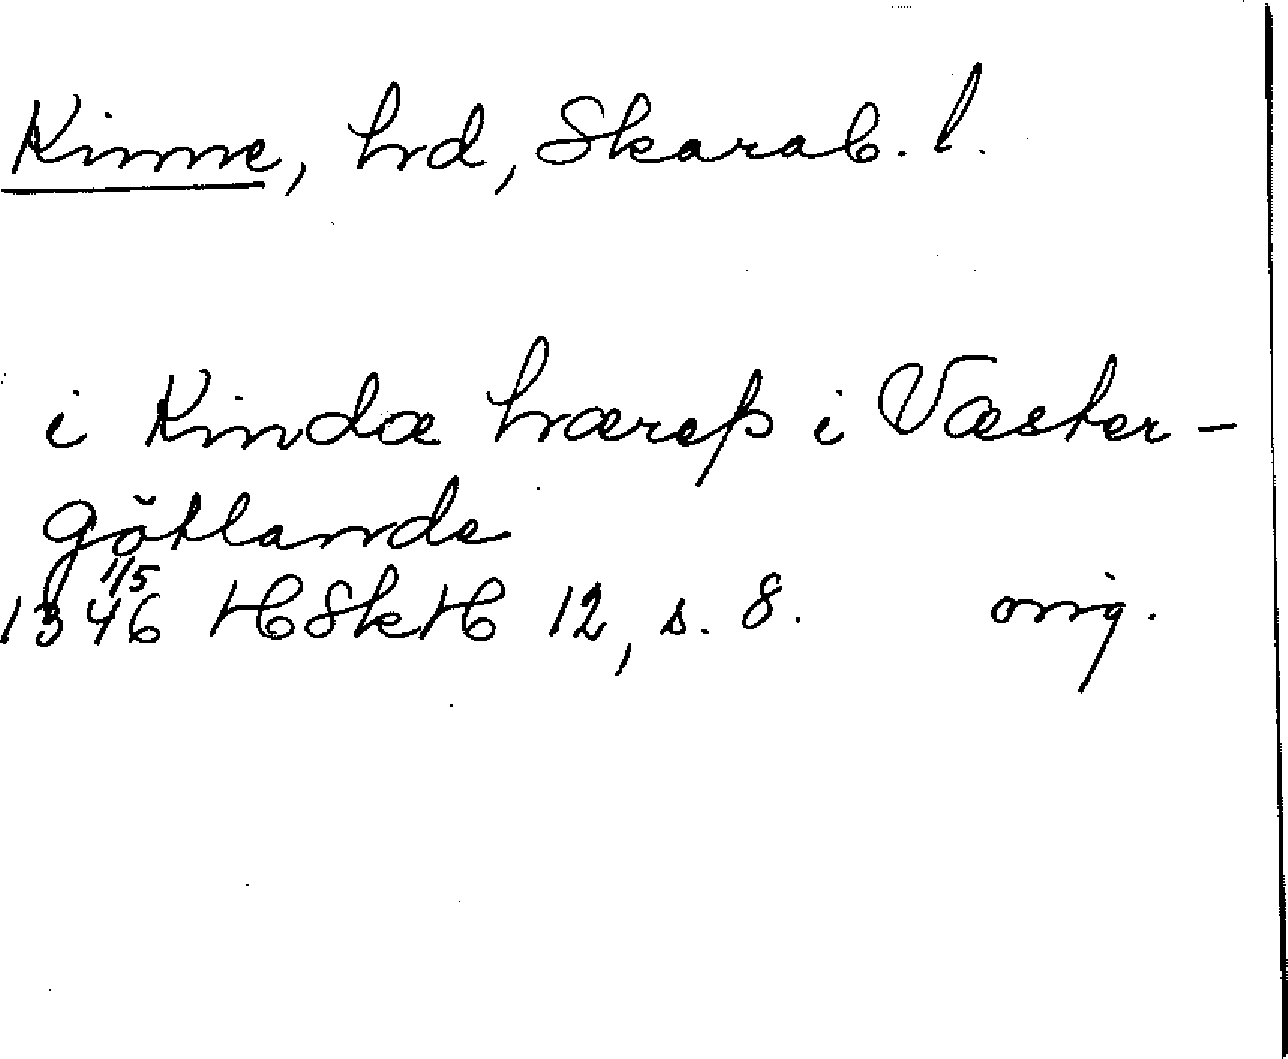 Kinne, hrd, Skarab. l.
i Kindæ hræreþ i Væster-
götlande
1346 1/5 HSkH 12, s. 8. orig.